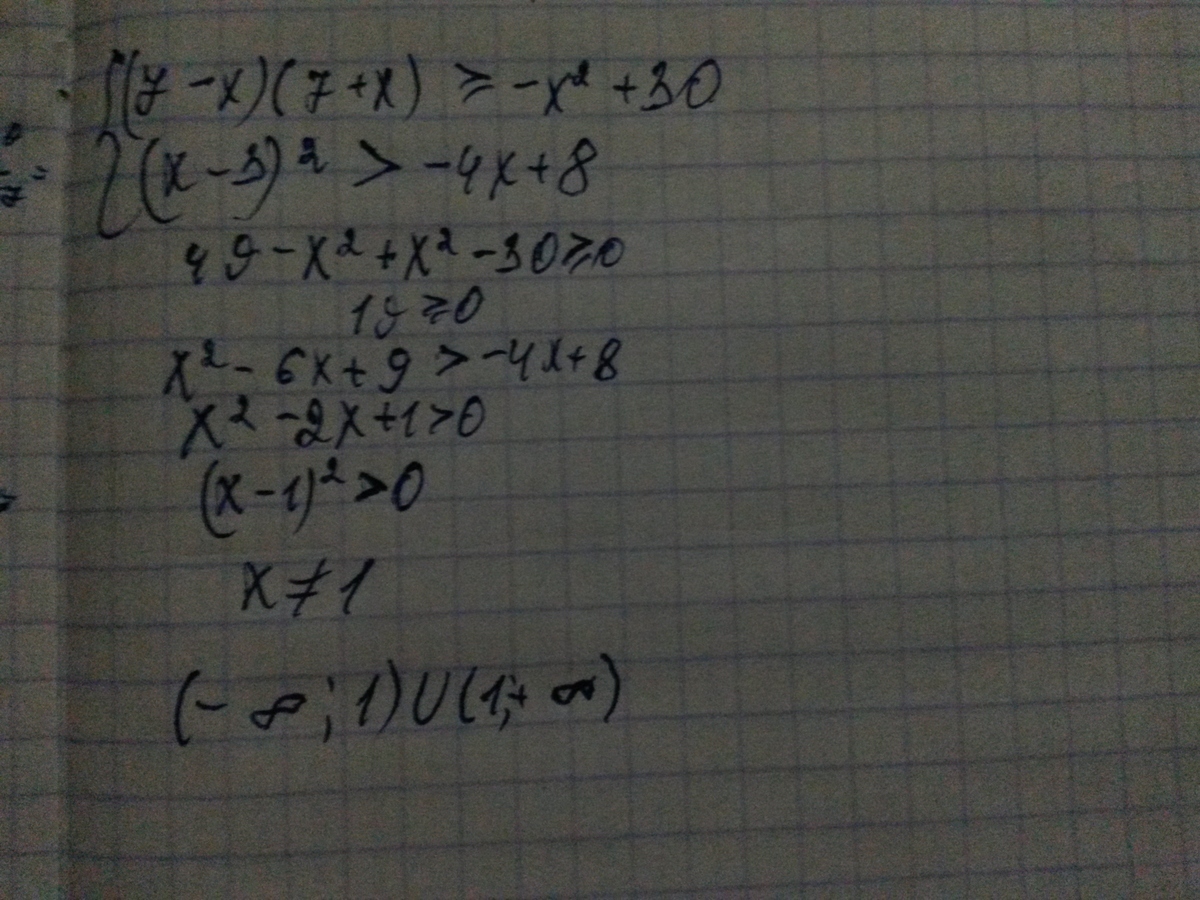 {(7-x)(7+x) ≥ -x² + 30
(x-3)² > -4x+8
49-x²+x²-30≥0
19≥0
x²-6x+9 > -4x+8
x²-2x+1>0
(x-1)²>0
x≠1
(-∞;1)U(1;+∞)